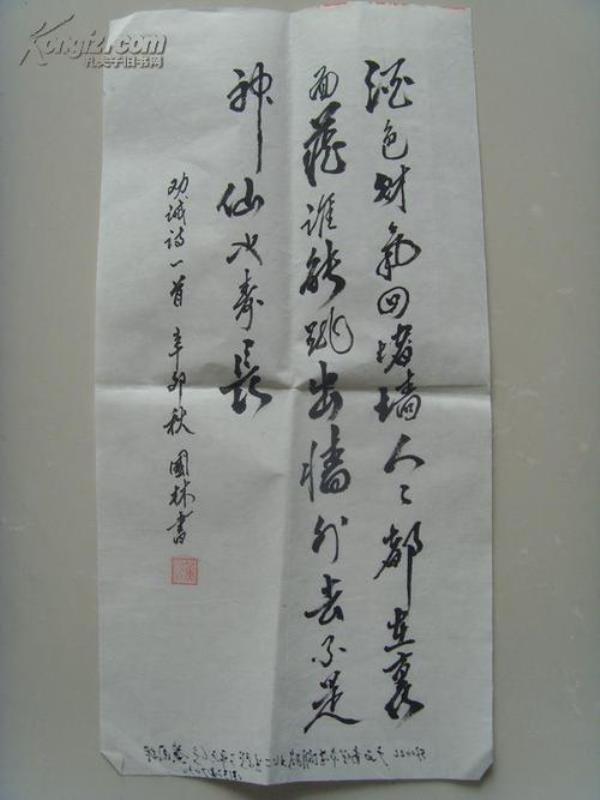 酒色财氣四堵墙人々都在裏
面藏谁能跳出墙外去不是
神仙也寿長
劝诫诗一首 辛卯秋 國林書
Kongfz.com
孔夫子旧书网